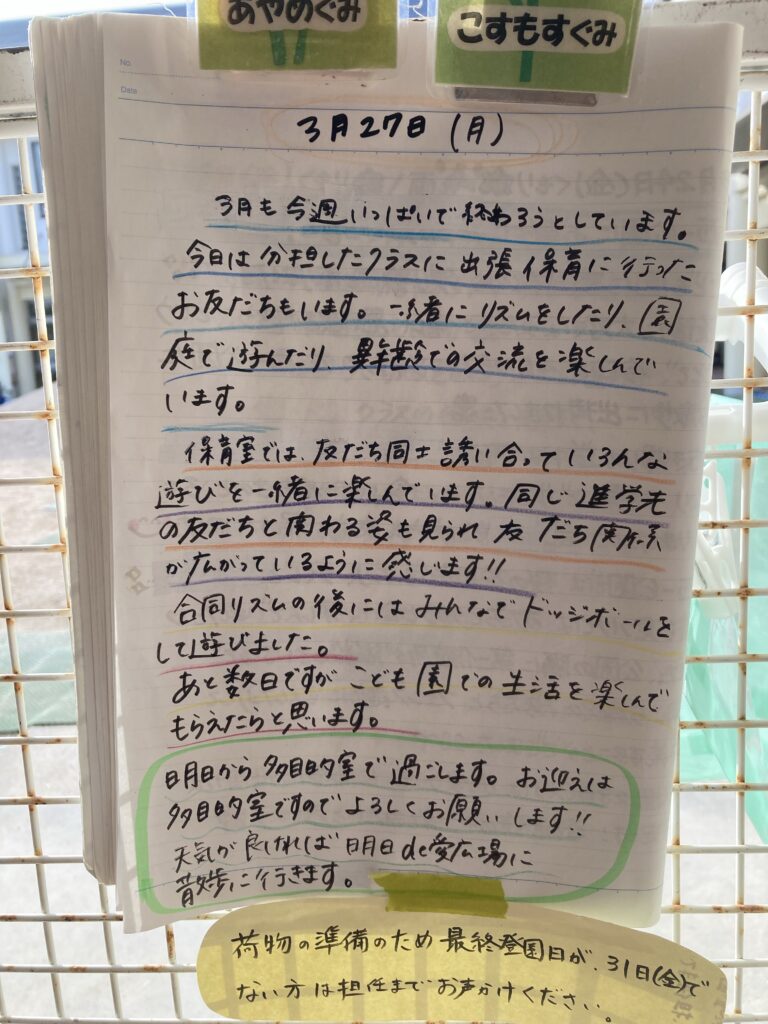 あやめぐみ
こすもすぐみ
No.
Date
3月27日(月)
3月も今週いっぱいで終わろうとしています。
今日は分担したクラスに出張保育に行った
お友だちもいます。一緒にリズムをしたり、園
庭で遊んだり、異年齢での交流を楽しんで
います。
保育室では、友だち同士誘い合っていろんな
遊びを一緒に楽しんでいます。同じ進学先
の友だちと関わる姿も見られ友だち関係
が広がっているように感じます!!
合同リズムの後にはみんなでドッジボールを
して遊びました。
あと数日ですがこども園での生活を楽しんで
もらえたらと思います。
明日から多目的室で過ごします。お迎えは
多目的室ですのでよろしくお願いします!!
天気が良ければ明日de愛広場に
散歩に行きます。
荷物の準備のため最終登園日が、31日(金)で
ない方は担任までお声かけください。